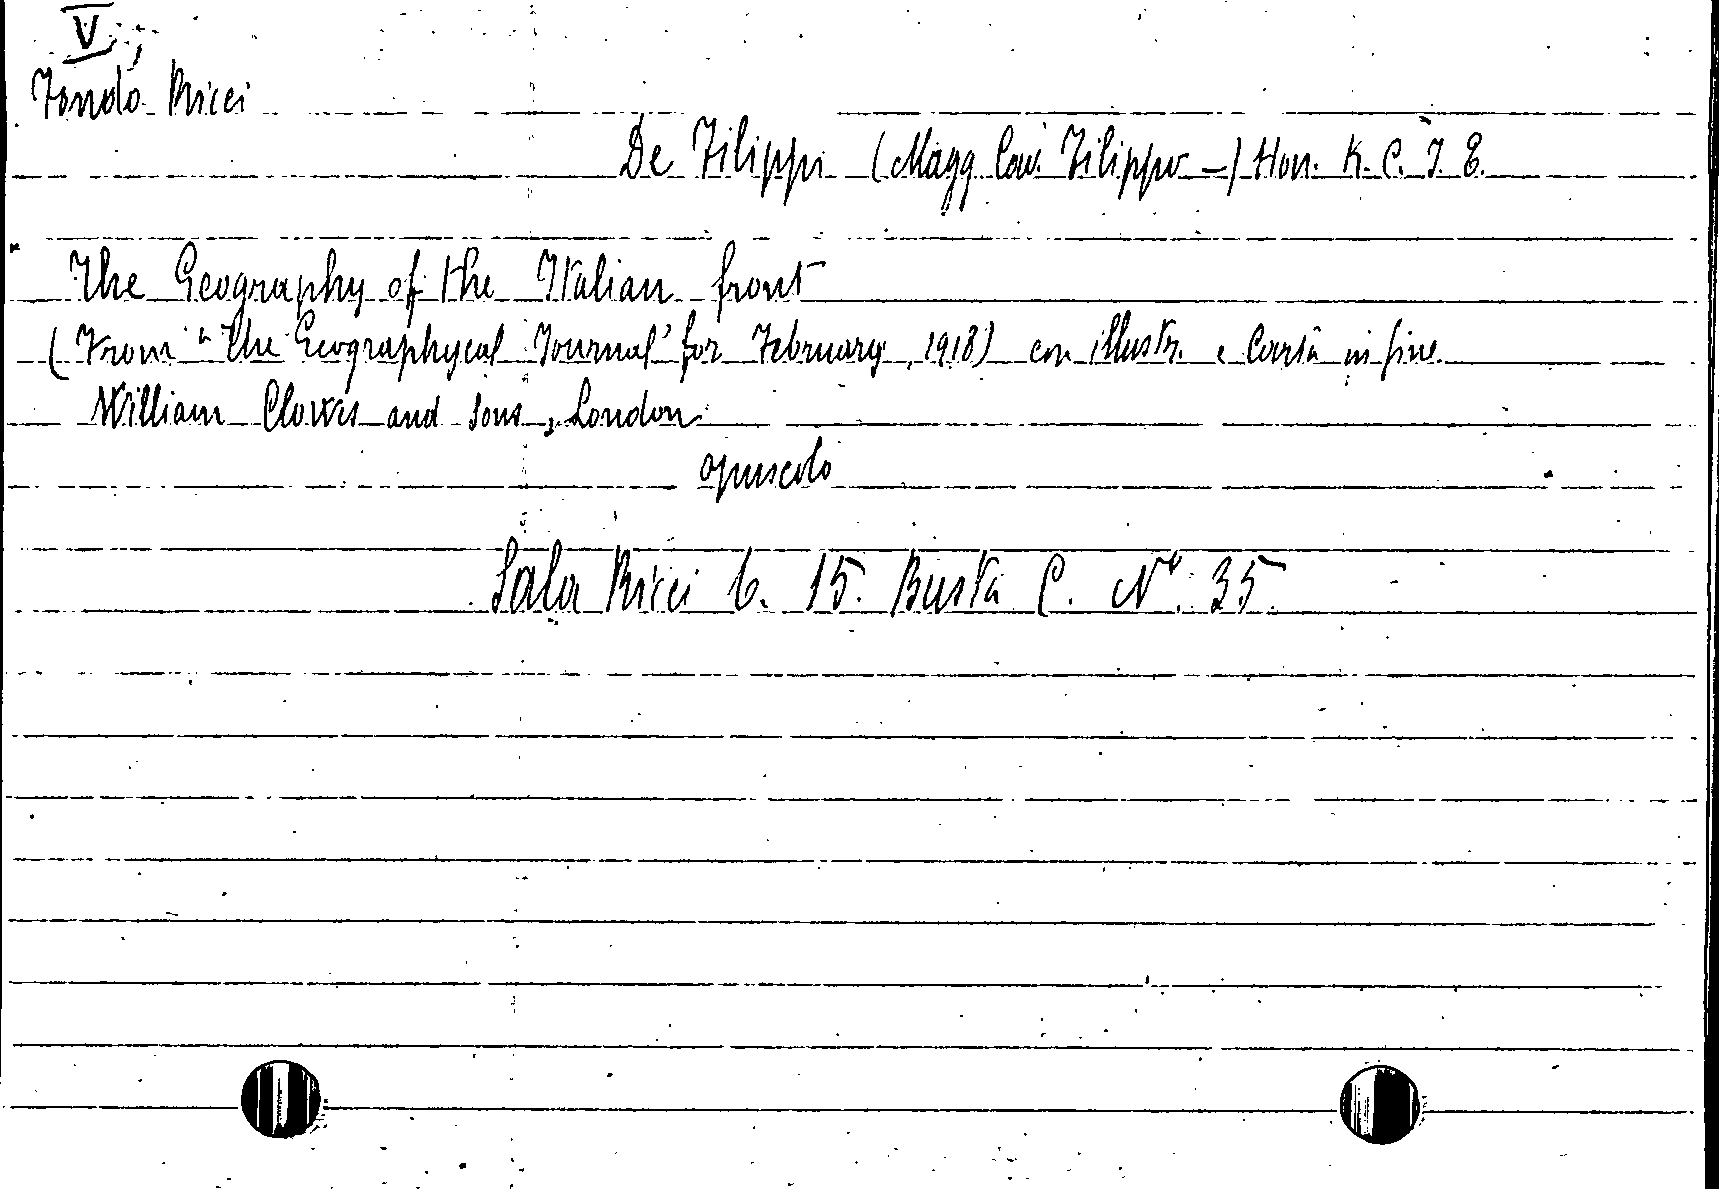 V
Fondo Ricci
De Filippi (Magg Cav. Filippo —) Hon. K. C. I. E.
The Geography of the Italian front
(From "The Geographycal Journal" for February, 1918) con illustr. e Carta in fine
William Clowes and Sons, London
opuscolo
Sala Ricci 6. 15. Busta C. N° 35